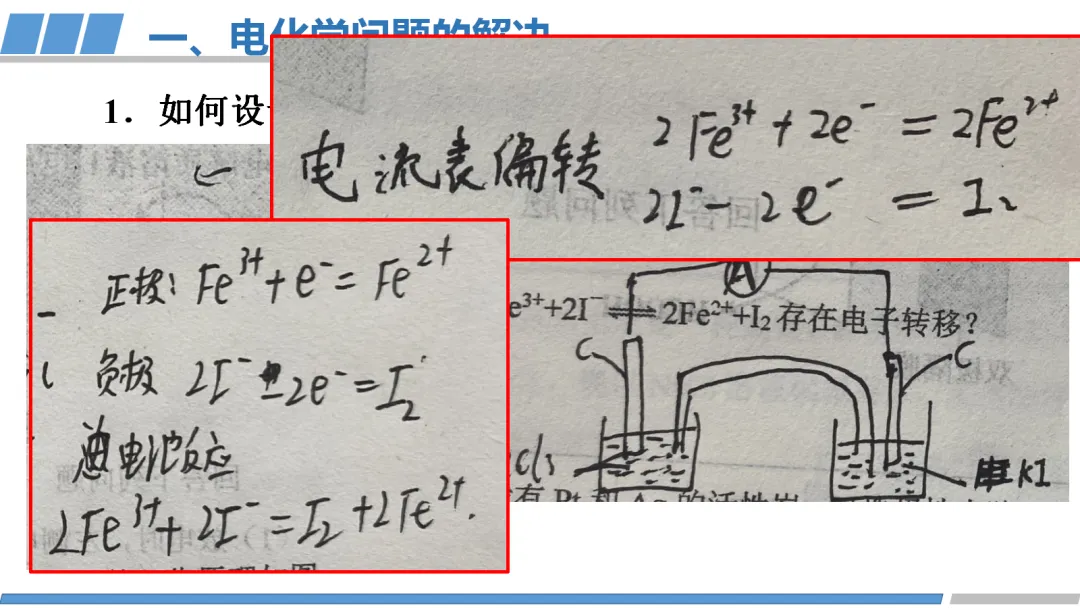 一、电化学问题的解决
1．如何设
电流表偏转
2Fe³⁺+2e⁻=2Fe²⁺
2I⁻-2e⁻=I₂
正极：Fe³⁺+e⁻=Fe²⁺
负极 2I⁻-2e⁻=I₂
总电池反应
2Fe³⁺+2I⁻=I₂+2Fe²⁺.
A
e³⁺+2I⁻⇌2Fe²⁺+I₂存在电子转移？
C
C
Cl₃
KI